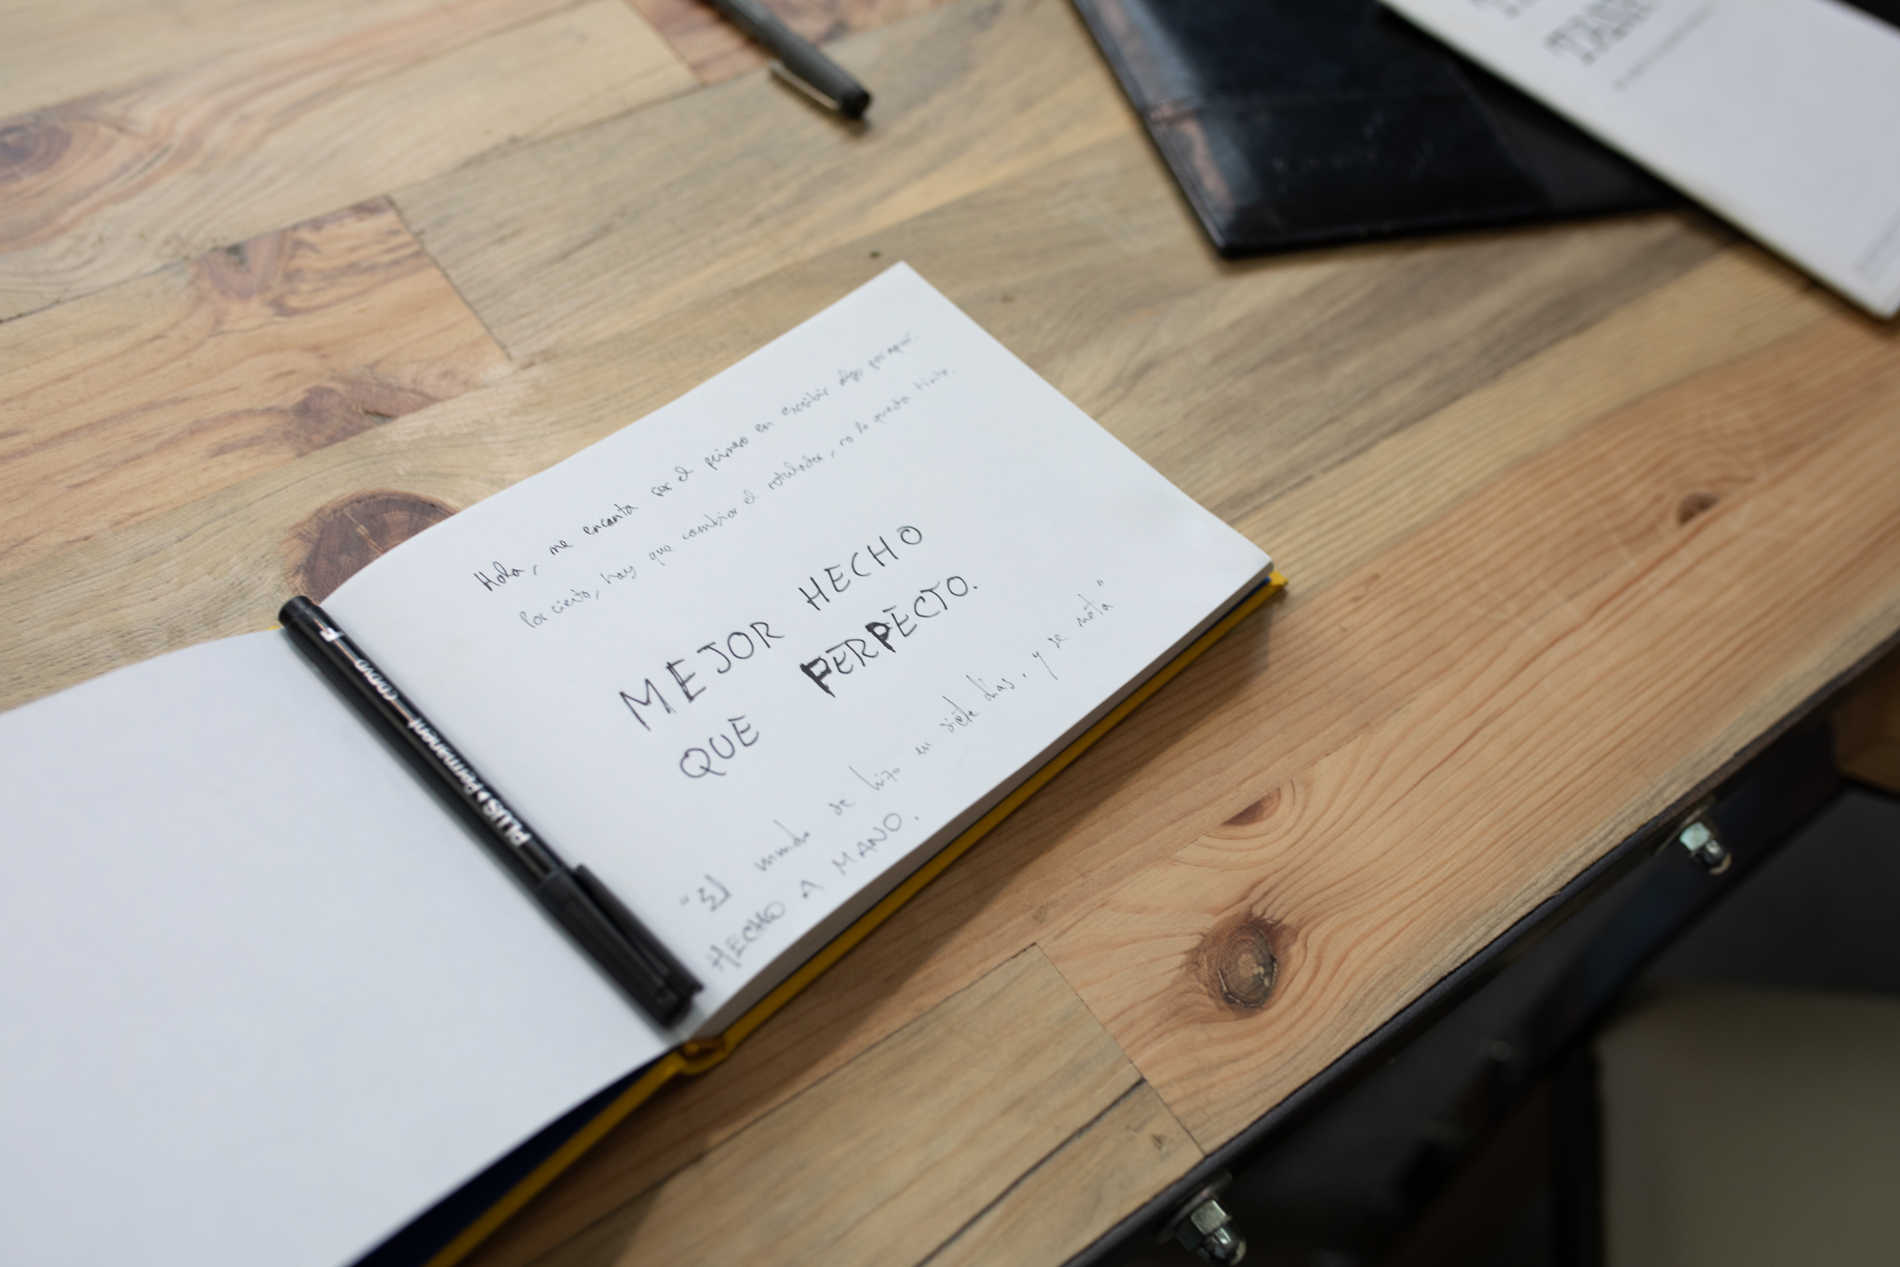 Hola, me encanta ser el primero en escribir algo por aquí.
Por cierto, hay que cambiar el rotulador, no le queda tinta.
MEJOR HECHO
QUE PERPECTO.
"El mundo se hizo en siete días, y se nota"
HECHO A MANO.
PLUS Permanent